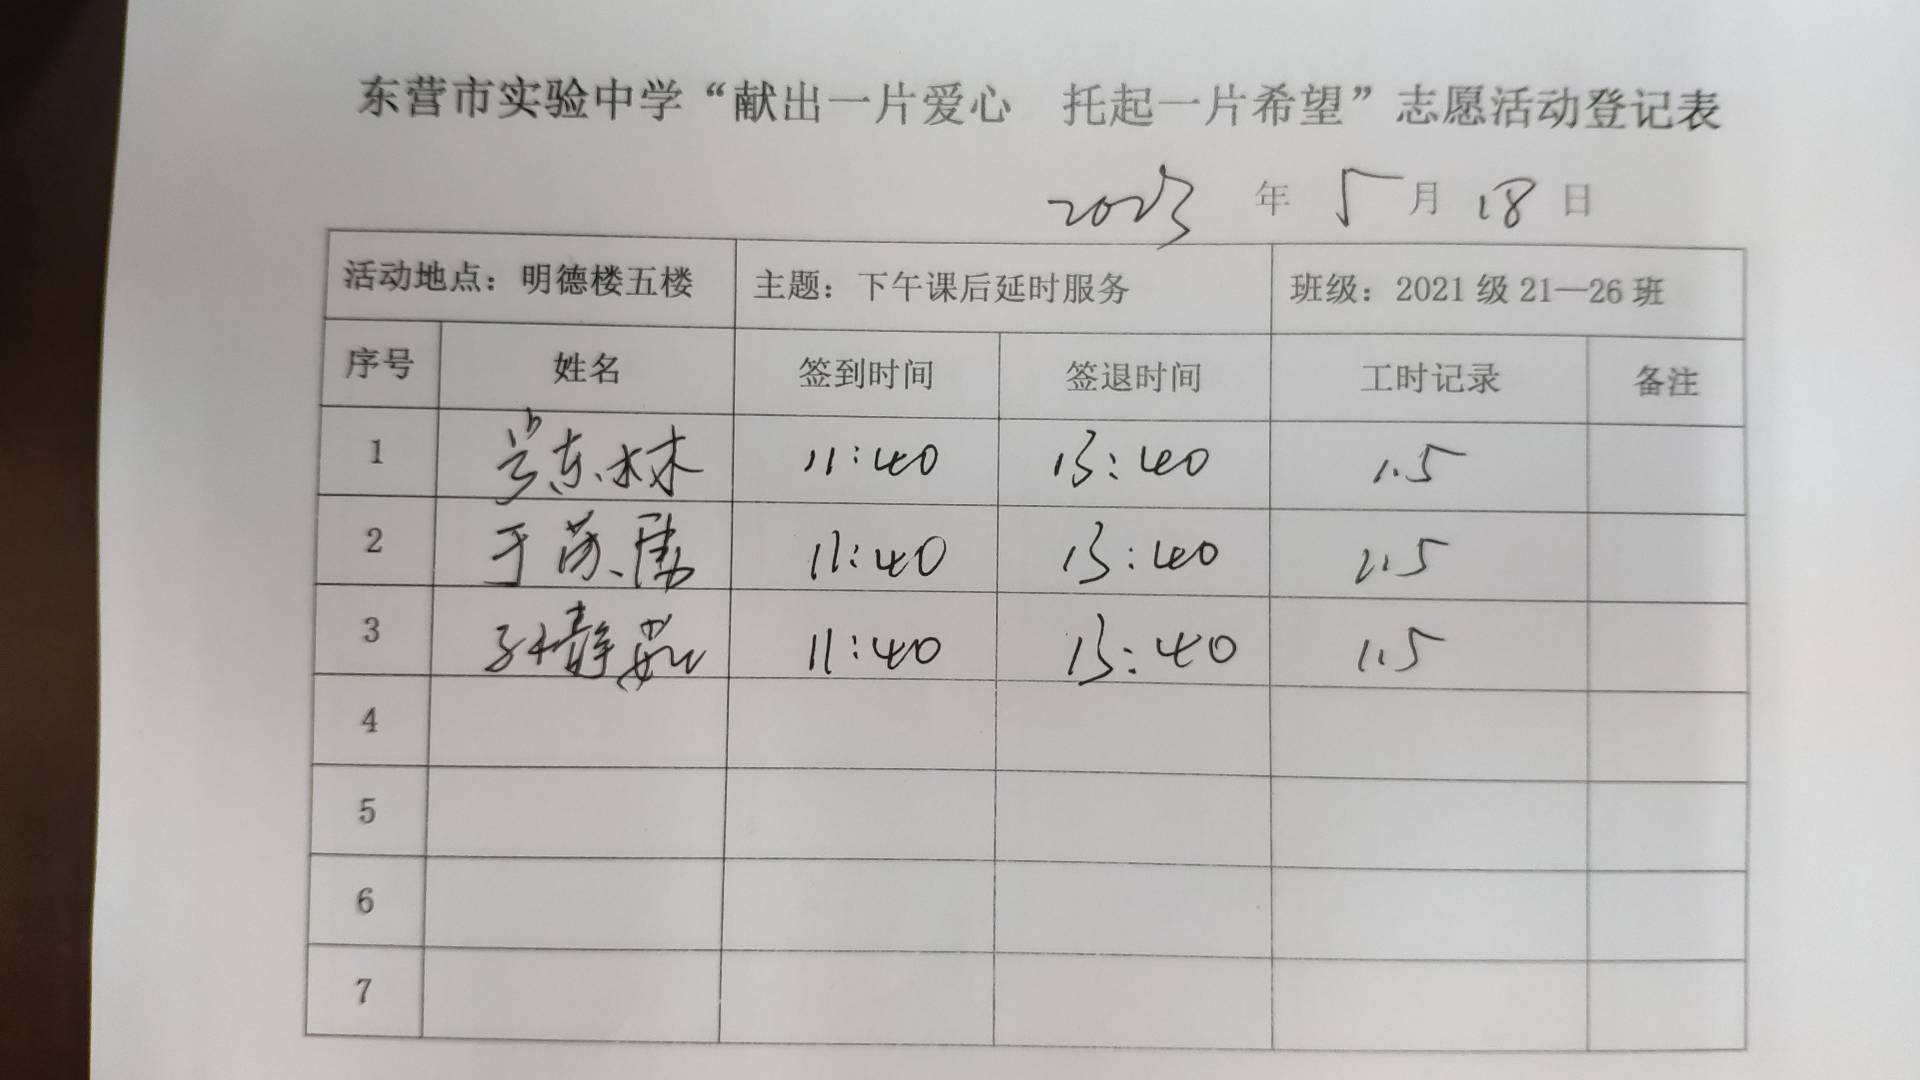 东营市实验中学“献出一片爱心 托起一片希望”志愿活动登记表
2023 年 5 月 18 日
活动地点：明德楼五楼 主题：下午课后延时服务 班级：2021 级 21—26 班
序号 姓名 签到时间 签退时间 工时记录 备注
1 东林 11:40 13:40 1.5
2 于苏 11:40 13:40 1.5
3 孙静茹 11:40 13:40 1.5
4
5
6
7